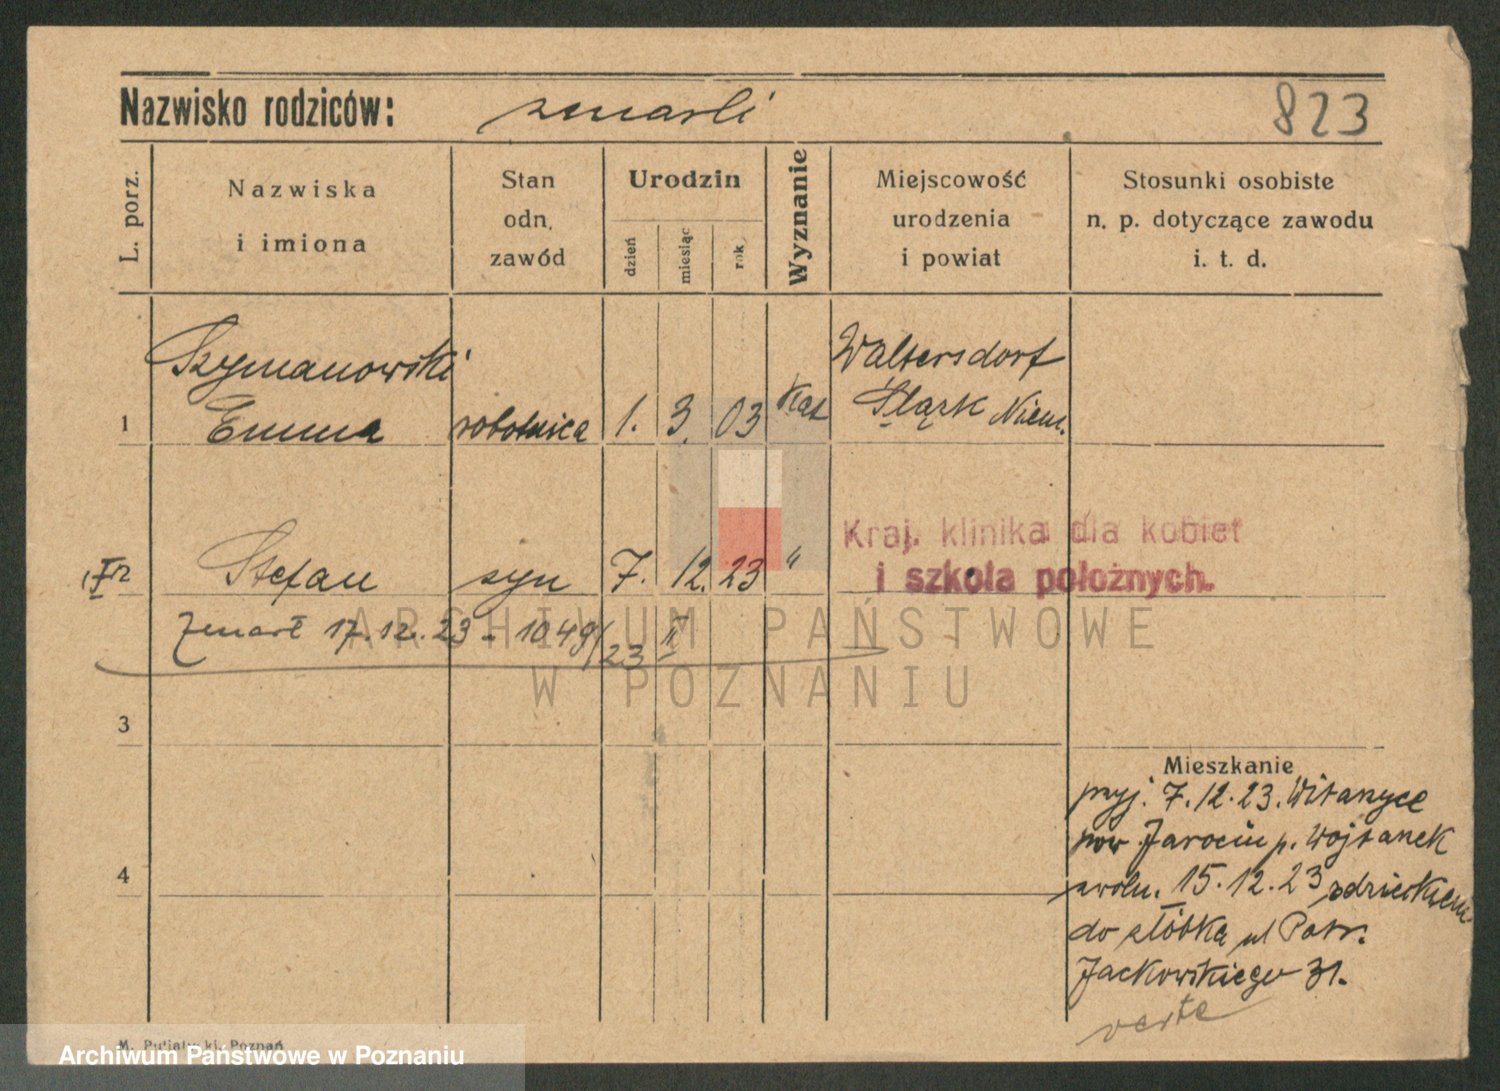 Nazwisko rodziców: zmarli 823
L. porz. Nazwiska i imiona Stan odn. zawód Urodzin dzień miesiąc rok Wyznanie Miejscowość urodzenia i powiat Stosunki osobiste n. p. dotyczące zawodu i. t. d.
Szymanowski Waltersdorf
1 Emma robotnica 1. 3. 03 Kat Śląsk Niem.
Kraj. klinika dla kobiet
2 Stefan syn 7. 12. 23 " i szkoła położnych.
Zmarł 17.12.23 - 1049/23 II
ARCHIWUM PAŃSTWOWE
W POZNANIU
3
Mieszkanie
przyj. 7.12.23. Witaszyce
pow Jarocin p. Wojtanek
4
zwoln. 15.12.23 z dzieckiem
do żłóbka ul Patr.
Jackowskiego 31.
verte
Poznań
Archiwum Państwowe w Poznaniu